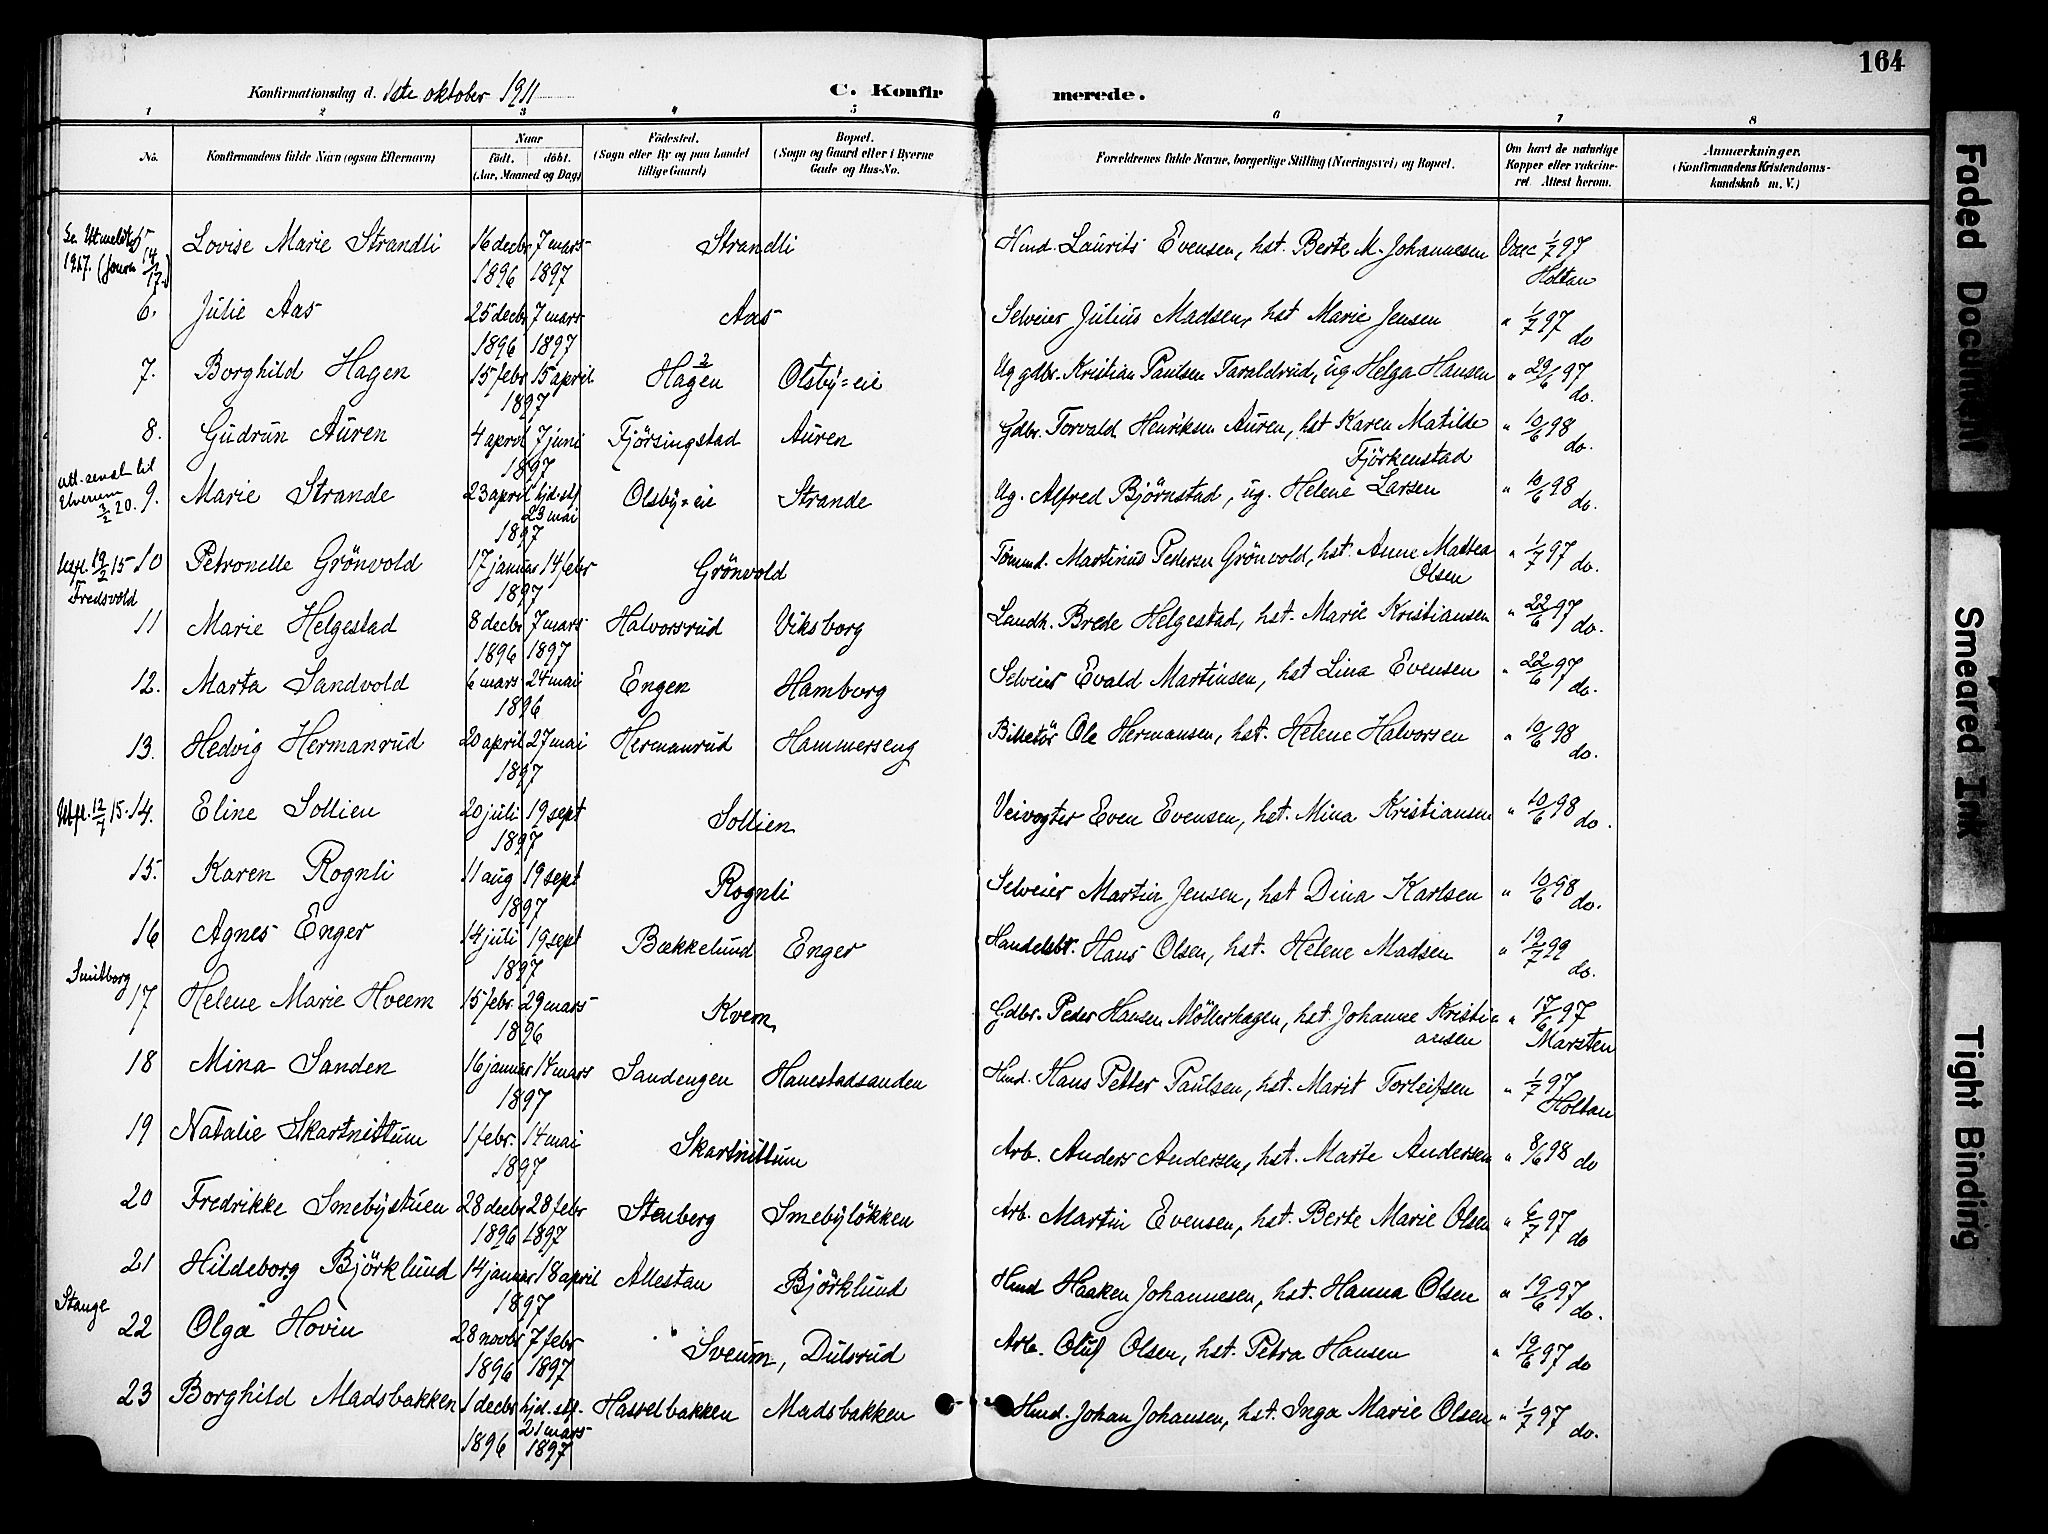 164
Konfirmationsdag d. 1ste oktober 1911 C. Konfirmerede.
1 2 3 4 5 6 7 8
No. Konfirmandens fulde Navn (ogsaa Efternavn) Naar födt. döbt. (Aar, Maaned og Dag) Födested. (Sogn eller By og paa Landet tillige Gaard) Bopæl. (Sogn og Gaard eller i Byerne Gade og Hus-No. Forældrenes fulde Navne, borgerlige Stilling (Næringsvei) og Bopæl. Om havt de naturlige Kopper eller vakcineret Attest herom. Anmærkninger. (Konfirmandens Kristendomskundskab m. V.)
Lovise Marie Strandli 16 decbr 1896 7 mars 1897 Strandli Hmd. Laurits Evensen, hst. Berte M. Johannesen Vacc 1/7 97 Holtan
6. Julie Aas 25 decbr 1896 7 mars 1897 Aas Selveier Julius Madsen, hst Marie Jensen " 1/7 97 do
7. Borghild Hagen 15 febr 15 april 1897 Hagen 2 Olsby=eie 1 Ug gdbr. Kristian Paulsen Taraldrud, ug Helga Hansen " 29/6 97 do.
8. Gudrun Auren 4 april 7 juni 1897 Fjörsingstad Auren Gdbr. Torvald Henriksen Auren, hst Karen Matilde Fjörkenstad " 10/6 98 do.
utt. sendt til Elverum 3/2 20. 9. Marie Strande 23 april hjd. stf. 23 mai 1897 Olsby=eie Strande Ug. Alfred Bjørnstad, ug. Helene Larsen " 10/6 98 do.
19/2 15 Fredsvold 10 Petronelle Grönvold 17 januar 14 febr 1897 Grönvold Tömmd. Martinus Pedersen Grönvold, hst. Anne Mattea Olsen " 1/7 97 do.
11 Marie Helgestad 8 decbr 1896 7 mars 1897 Halvorsrud Viksborg Landh. Brede Helgestad, hst. Marie Kristiansen " 22/6 97 do.
12. Marta Sandvold 6 mars 24 mai 1896 Engen Hamborg Selveier Evald Martinsen, hst Lina Evensen " 22/6 97 do.
13. Hedvig Hermanrud 20 april 27 mai 1897 Hermanrud Hammerseng Billetör Ole Hermansen, hst. Helene Halvorsen " 10/6 98 do.
Utfl. 12/7 15. 14. Eline Sollien 20 juli 19 sept 1897 Sollien Veivogter Even Evensen, hst. Mina Kristiansen " 10/6 98 do.
15. Karen Rognli 11 aug 19 sept 1897 Rognli Selveier Martin Jensen, hst Dina Karlsen " 10/6 98 do.
16 Agnes Enger 14 juli 19 sept 1897 Bækkelund Enger Handelsbt. Hans Olsen, hst. Helene Madsen " 19/7 99 do.
Smidborg 17 Helene Marie Hveem 15 febr. 29 mars 1896 Kvem Gdbr. Peder Hansen Möllerhagen, hst. Johanne Kristiansen " 17/6 97 Marsten
18 Mina Sanden 16 januar 14 mars 1897 Sandengen Hanestadsanden Hmd. Hans Petter Paulsen, hst. Marit Torleifsen " 1/7 97 Holtan
19 Natalie Skartnittum 1 febr. 14 mai 1897 Skartnittum Arb. Anders Andersen, hst. Marte Andersen " 8/6 98 do
20 Fredrikke Smebystuen 28 decbr 1896 28 febr 1897 Stenberg Smebylökken Arb. Martin Evensen, hst. Berte Marie Olsen " 6/7 97 do
21 Hildeborg Björklund 14 januar 18 april 1897 Allestan Björklund Hmd Haaken Johannesen, hst. Hanna Olsen " 19/6 97 do.
Stange 22 Olga Hovin 28 novbr 1896 7 febr 1897 Sveum, Dulsrud Arb. Oluf Olsen, hst. Petra Hansen " 19/6 97 do
23 Borghild Madsbakken 1 decbr 1896 hjd. stf. 21 mars 1897 Hasselbakken Madsbakken Hmd. Johan Johansen, hst. Inga Marie Olsen " 1/7 97 do.
Faded Document
Smeared Ink
Tight Binding